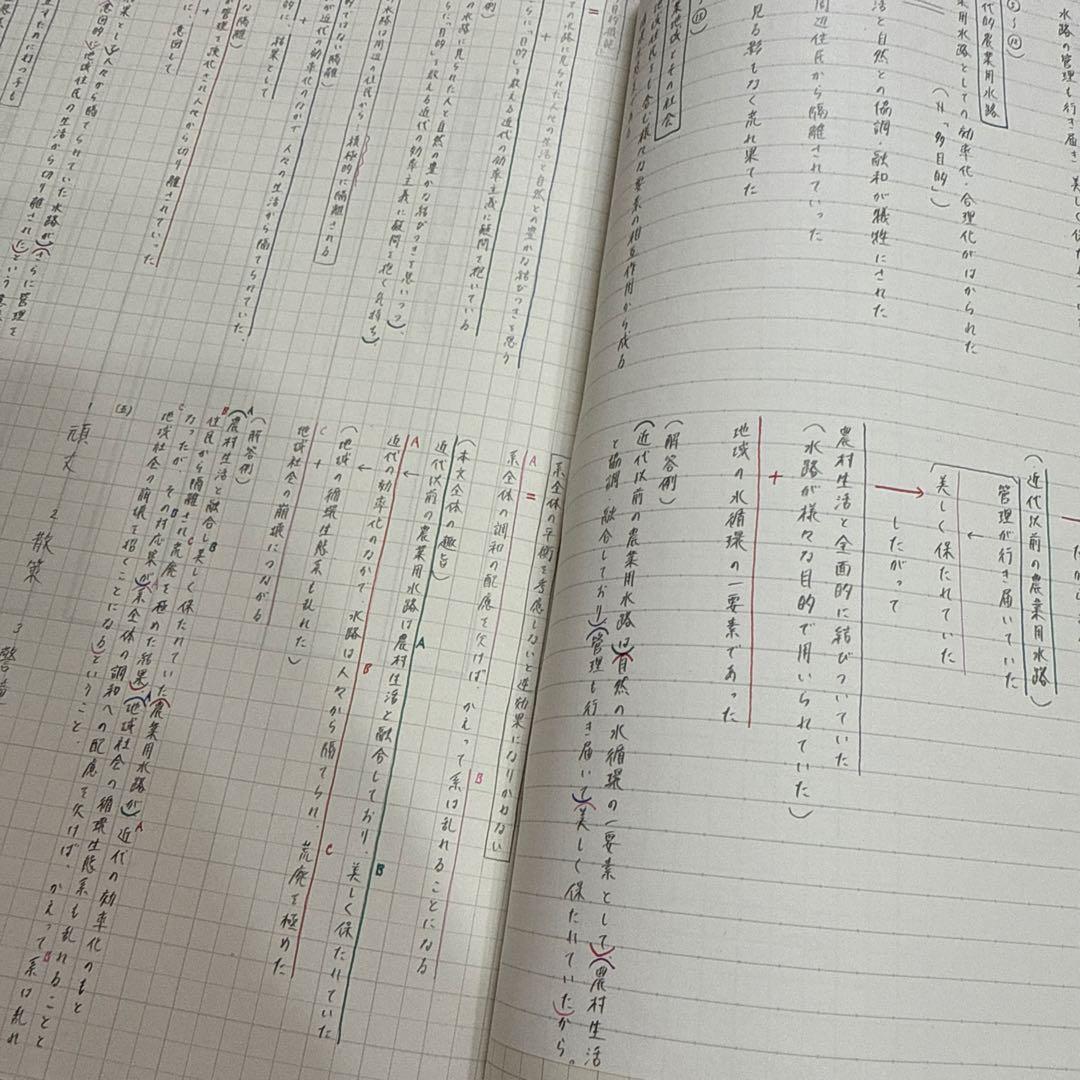 水路の管理も行き届き
代的農業用水路
業用水路としての効率化・合理化がはかられた
(⇔「多目的」)
活と自然との協調・融和が犠牲にされた
周辺住民から隔離されていった
見る影もなく荒れ果てた
(近代以前の農業用水路)
管理が行き届いていた
←
美しく保たれていた
したがって
農村生活と全面的に結びついていた
(水路が様々な目的で用いられていた)
+
地域の水循環の一要素であった
(解答例)
(近代以前の農業用水路は)(自然の水循環の一要素として)(農村生活
と協調・融合しており)(管理も行き届いて)(美しく保たれていた)から。
業地域とその社会
域住民をも含む様々な要素の相互作用から成る
=
A
系全体の平衡を考慮しないと逆効果になりかねない
=
系全体の調和の配慮を欠けば、かえって系は乱れることになる
B
(本文全体の趣旨)
近代以前の農業用水路は農村生活と融合しており、美しく保たれていた
A
B
←
近代の効率化のなかで、水路は人々から隔てられ、荒廃を極めた
A
B
C
←
(地域の循環生態系も乱れた)
+
地域社会の崩壊につながる
C
(解答例)
(農村生活と融合し美しく保たれていた農業用水路が)近代の効率化のもと
住民から隔離され荒廃を極めた結果、(地域社会の循環生態系も乱れることと
なったが、その対応策が)系全体の調和への配慮を欠けば、かえって系は乱れ
地域社会の崩壊を招くことになる)ということ。
(五)
1 頑丈 2 散策 3
+
の水路に見られた人々の生活と自然との豊かな結びつきを思う
らに「目的」を救える近代の効率主義に疑問を抱いている
の水路に見られた人と自然の豊かな結びつきを思いつつ、
らに「目的」を救える近代の効率主義に疑問を抱く気持ち。
水路は周辺の住民から 積極的に隔離される
的ではない隔離)
が近代の効率化のなかで人々の生活から隔てられていた
的に、結果として
+
な隔離)
が管理を強化され人々から切り離されていった
的に、意図して
果として)人々から隔てられていた水路が)(さらに管理を
意図的に地域住民の生活から切り離された)という意味